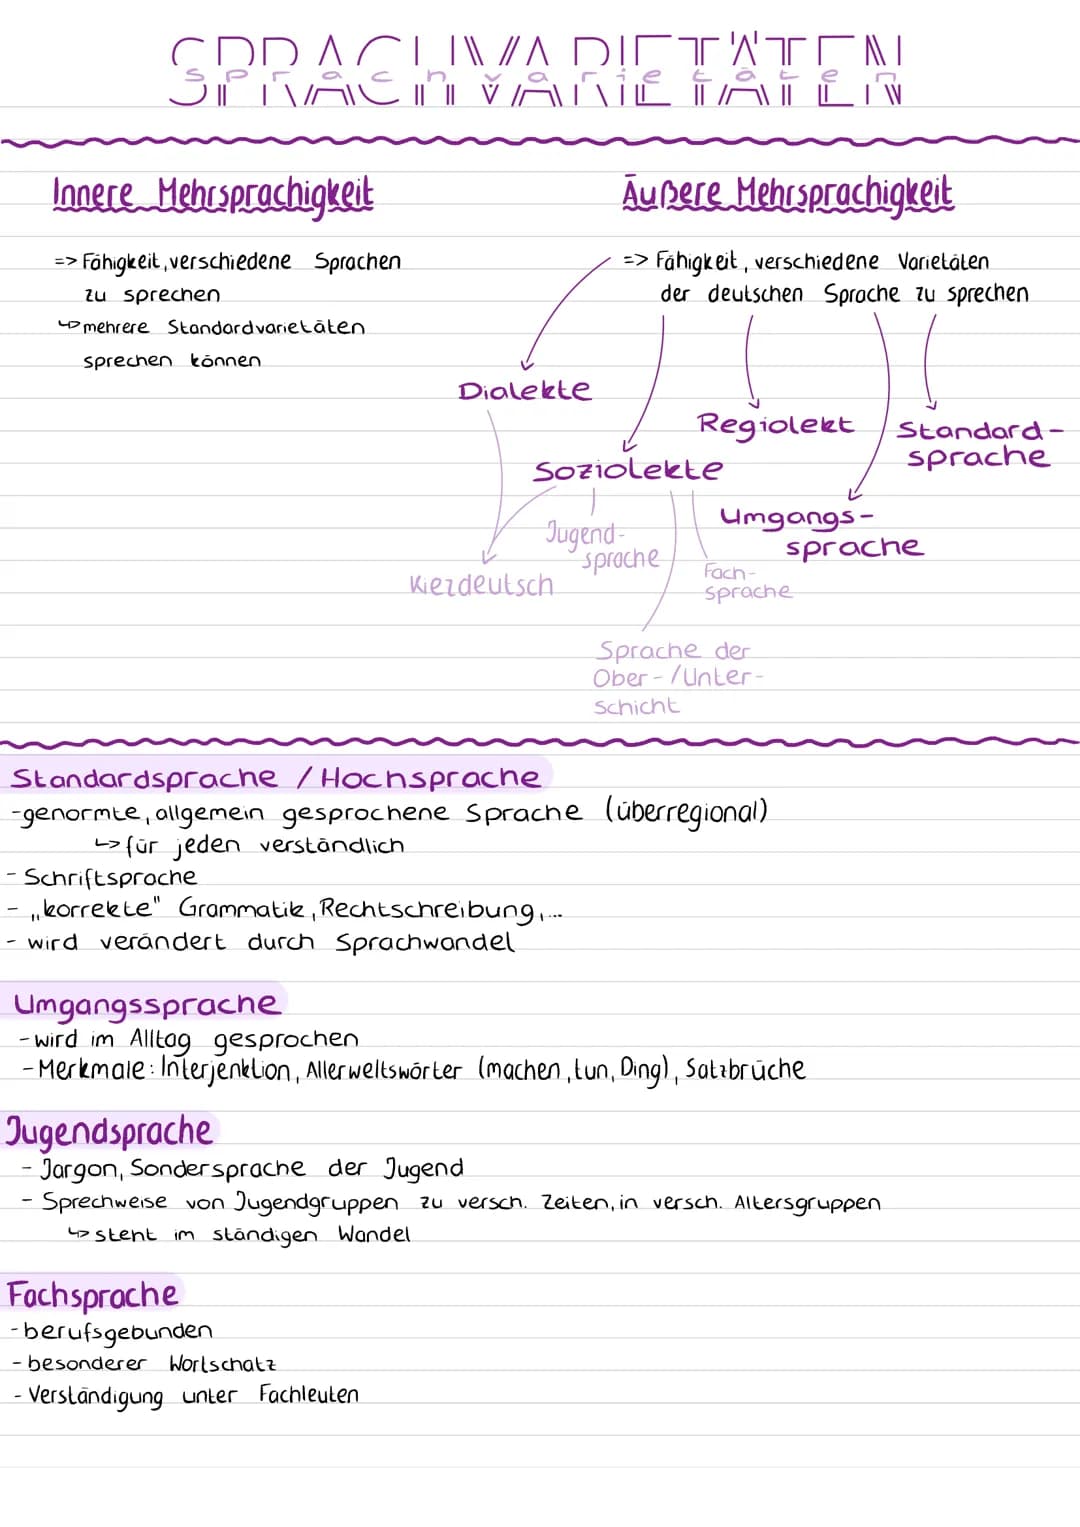 SPRACHVARIETÄTEN
Sprachvarietäten
Innere Mehrsprachigkeit
=> Fähigkeit, verschiedene Sprachen
zu sprechen
↳ mehrere Standardvarietäten
sprechen können
Äußere Mehrsprachigkeit
=> Fähigkeit, verschiedene Varietäten
der deutschen Sprache zu sprechen
Dialekte
Regiolekt
Standard-
sprache
Soziolekte
Umgangs-
sprache
Jugend-
sprache
Kiezdeutsch
Fach-
sprache
Sprache der
Ober-/Unter-
schicht
Standardsprache / Hochsprache
- genormte, allgemein gesprochene Sprache (überregional)
↳ für jeden verständlich
- Schriftsprache
- „korrekte" Grammatik, Rechtschreibung,...
- wird verändert durch Sprachwandel
Umgangssprache
- wird im Alltag gesprochen
- Merkmale: Interjenktion, Allerweltswörter (machen, tun, Ding), Satzbrüche
Jugendsprache
- Jargon, Sondersprache der Jugend
- Sprechweise von Jugendgruppen zu versch. Zeiten, in versch. Altersgruppen
↳ steht im ständigen Wandel
Fachsprache
- berufsgebunden
- besonderer Wortschatz
- Verständigung unter Fachleuten